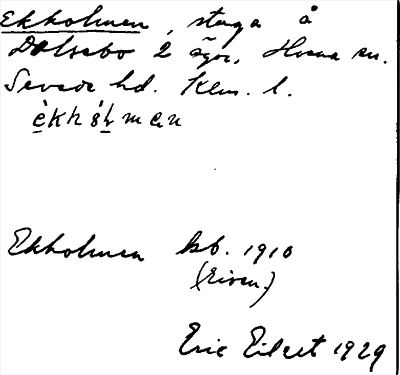 Ekkolmen, stuga å
Dalsebo 2 ägor, Hvena sn.
Sevede hd. Klm. l.
èkhólmen
Ekholmen kb. 1910
Eric Eilert 1929